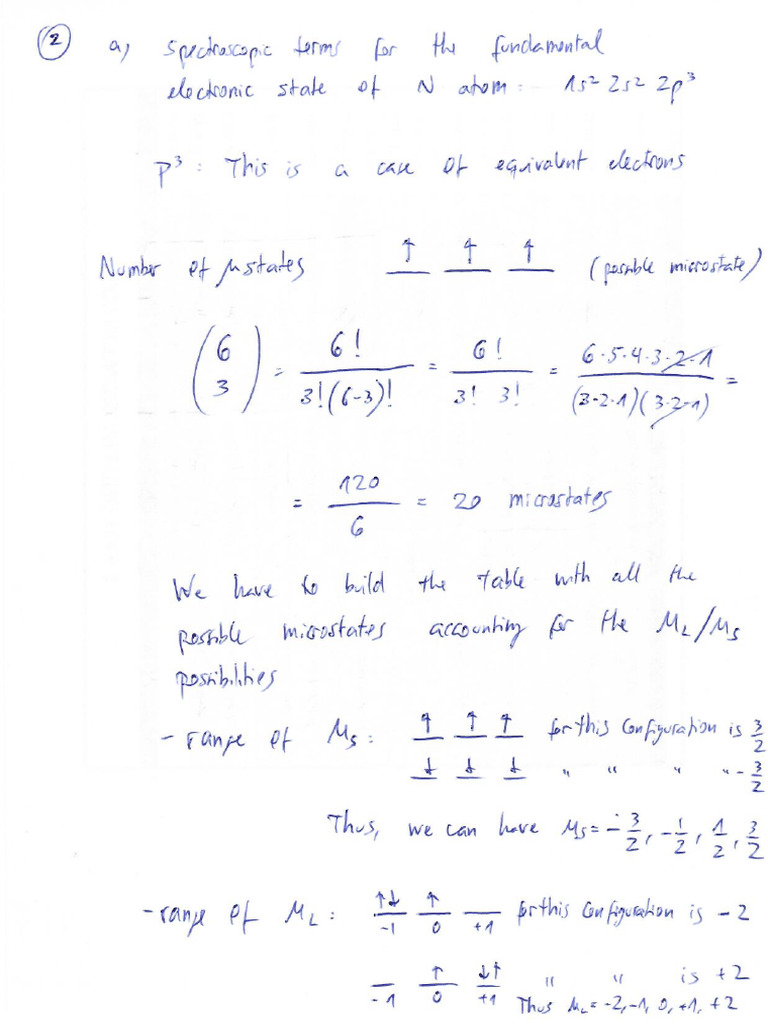 2 a) Spectroscopic terms for the fundamental
electronic state of N atom: 1s² 2s² 2p³
p³: This is a case of equivalent electrons
Number of μstates ↑ ↑ ↑ (possible microstate)
(6 3) = 6! / 3!(6-3)! = 6! / 3! 3! = 6·5·4·3·2·1 / (3·2·1)(3·2·1) =
= 120 / 6 = 20 microstates
We have to build the table with all the
possible microstates accounting for the M_L/M_S
possibilities
- range of M_S: ↑ ↑ ↑ for this configuration is 3/2
↓ ↓ ↓ " " " " -3/2
Thus, we can have M_S = -3/2, -1/2, 1/2, 3/2
- range of M_L: ↑↓ ↑ __ for this configuration is -2
-1 0 +1
__ ↑ ↓↑ " " is +2
-1 0 +1 Thus M_L = -2, -1, 0, +1, +2